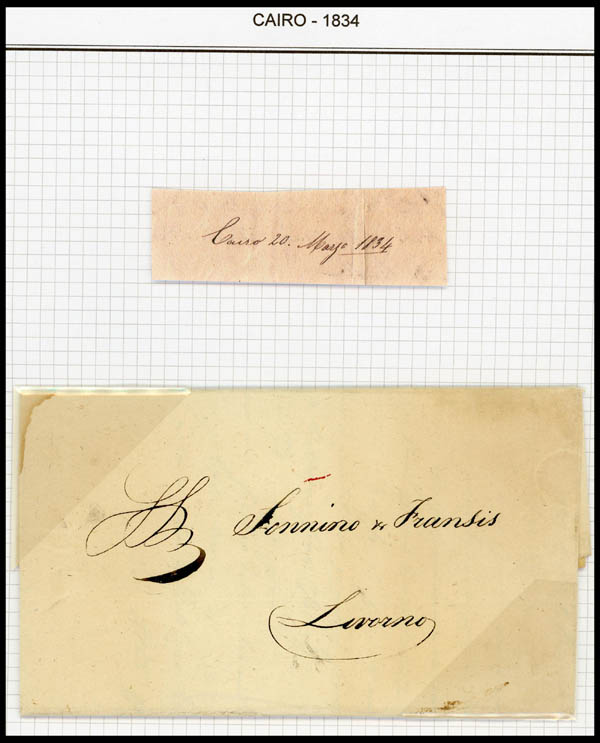 CAIRO - 1834
Cairo 20. Marzo 1834
Sonnino & Fransis
Livorno